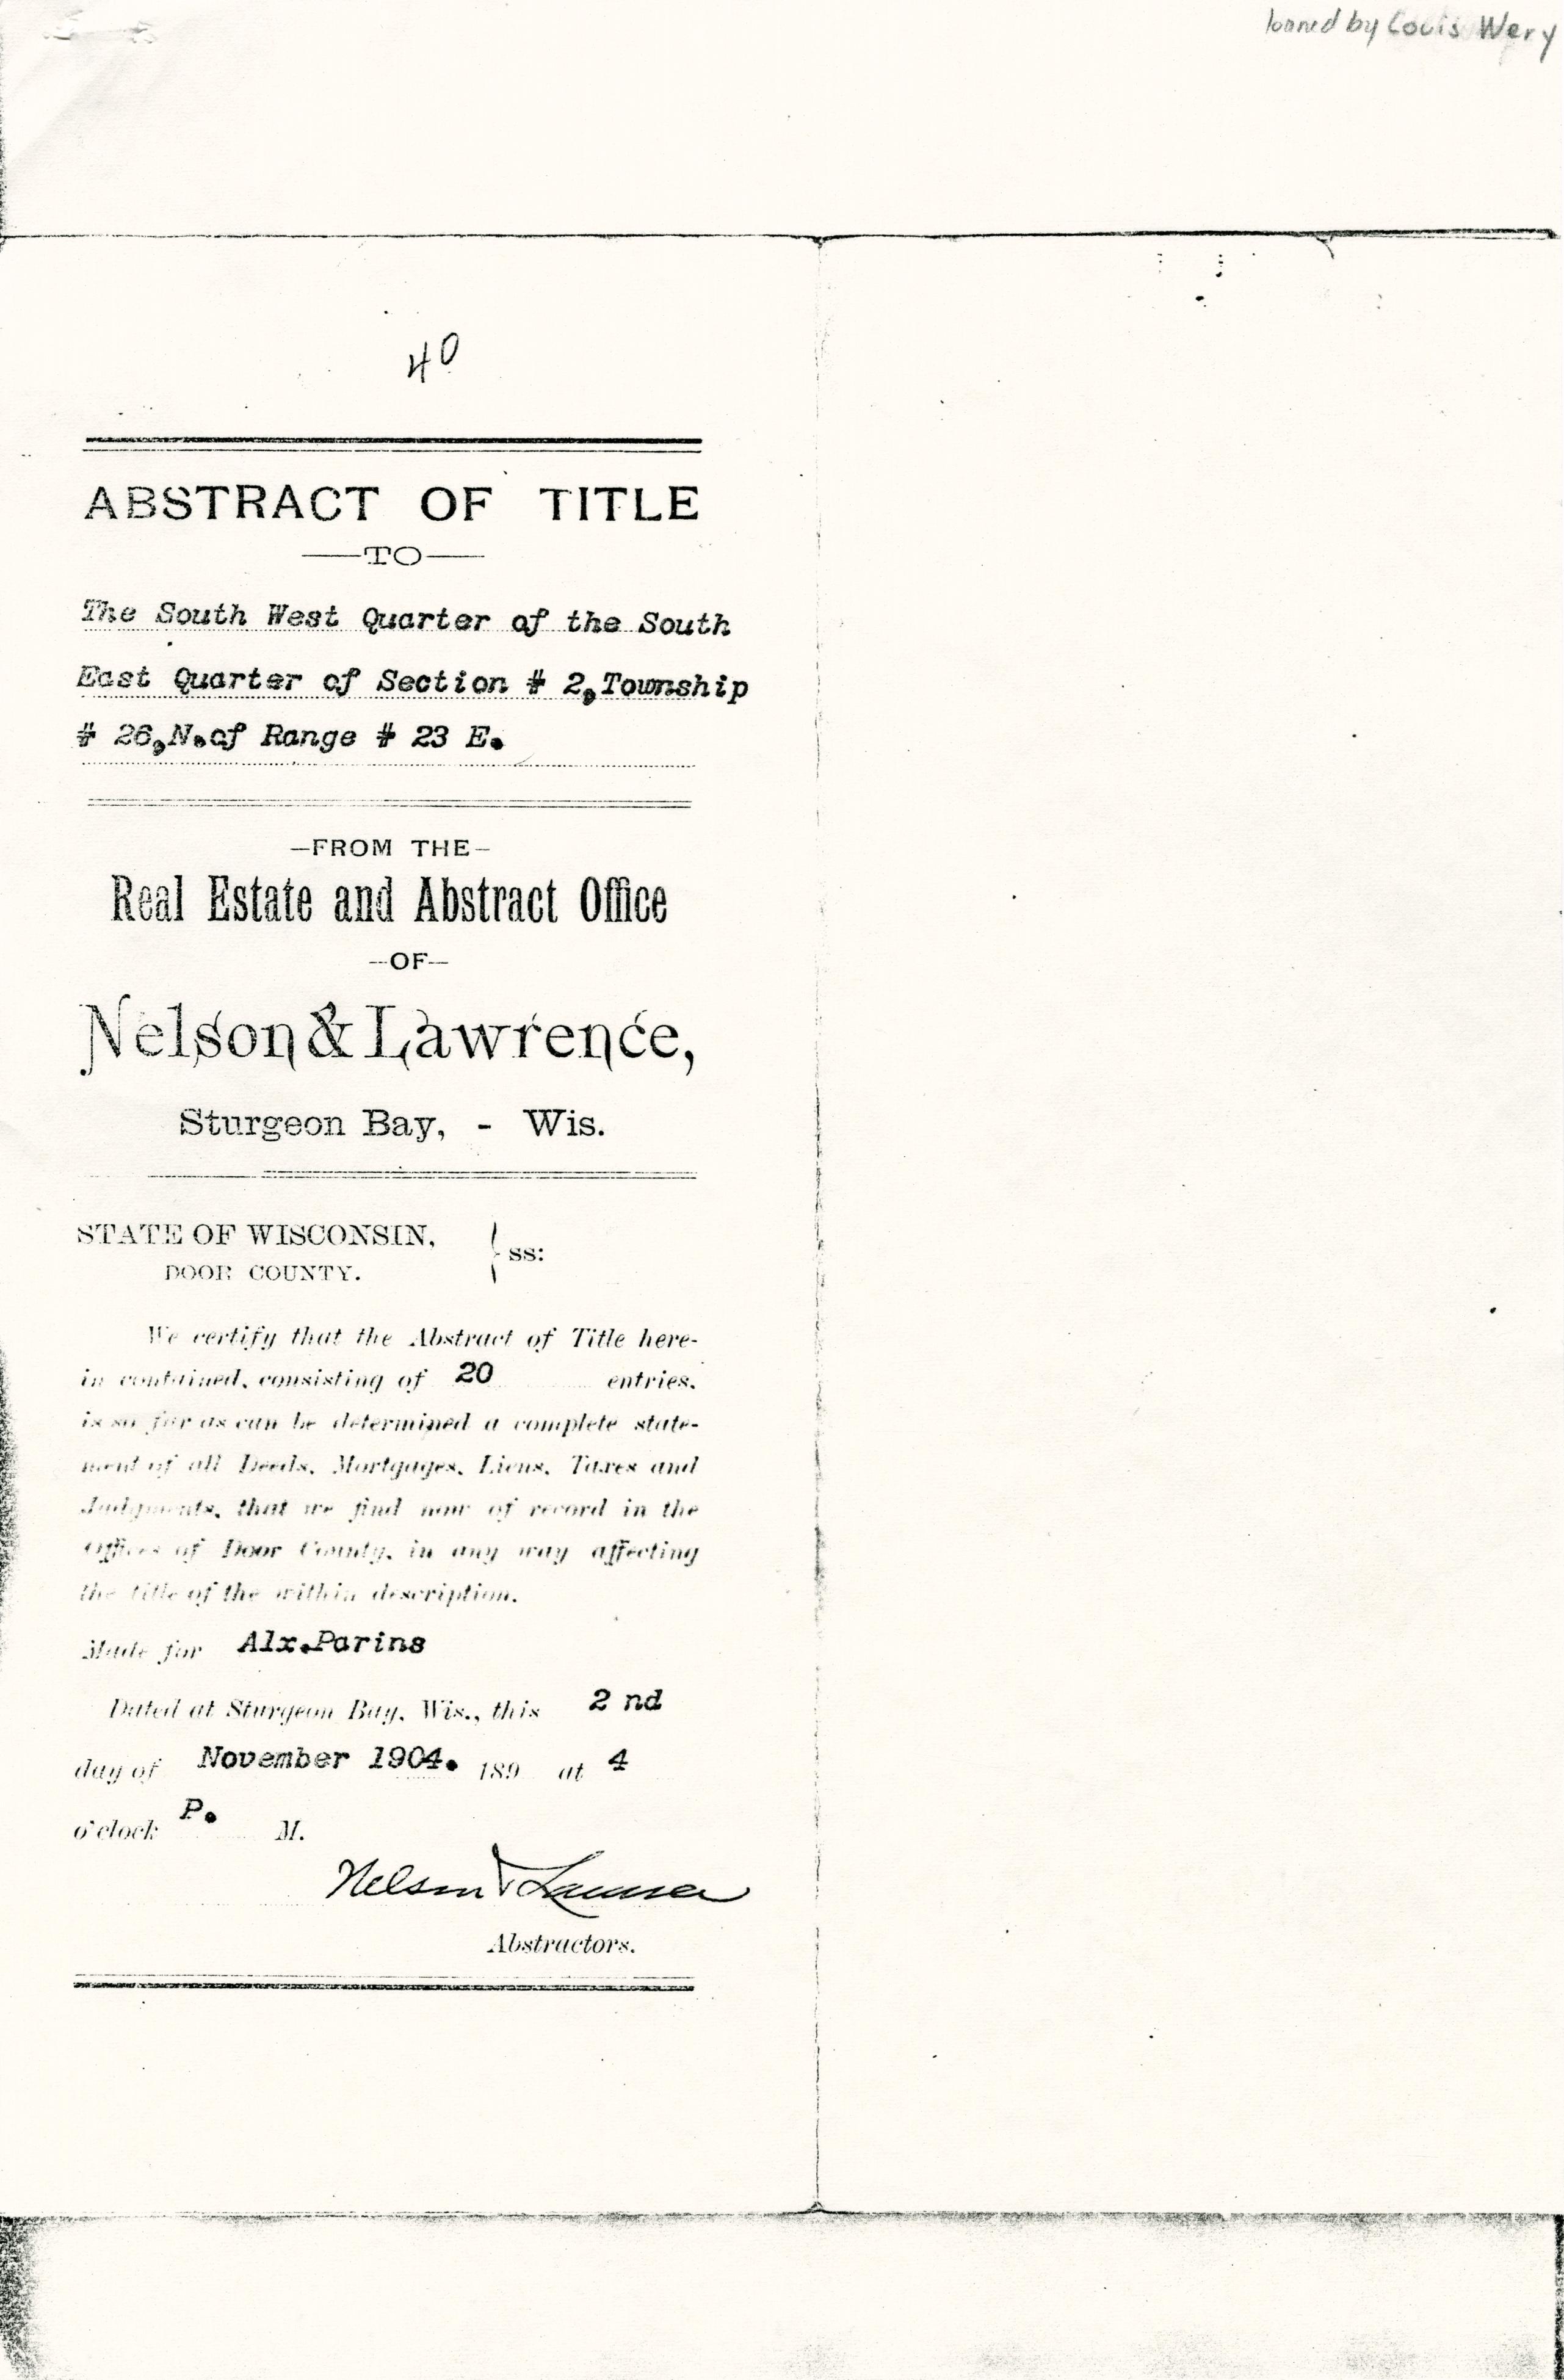 loaned by Louis Wery
40
ABSTRACT OF TITLE
—TO—
The South West Quarter of the South
East Quarter of Section # 2, Township
# 26, N. of Range # 23 E.
—FROM THE—
Real Estate and Abstract Office
—OF—
Nelson & Lawrence,
Sturgeon Bay, - Wis.
STATE OF WISCONSIN, } ss:
DOOR COUNTY.
We certify that the Abstract of Title here-
in contained, consisting of 20 entries,
is so far as can be determined a complete state-
ment of all Deeds, Mortgages, Liens, Taxes and
Judgments, that we find now of record in the
Offices of Door County, in any way affecting
the title of the within description.
Made for Alx. Parins
Dated at Sturgeon Bay, Wis., this 2 nd
day of November 1904. 189 at 4
o'clock P. M.
Nelson & Lawrence
Abstractors.